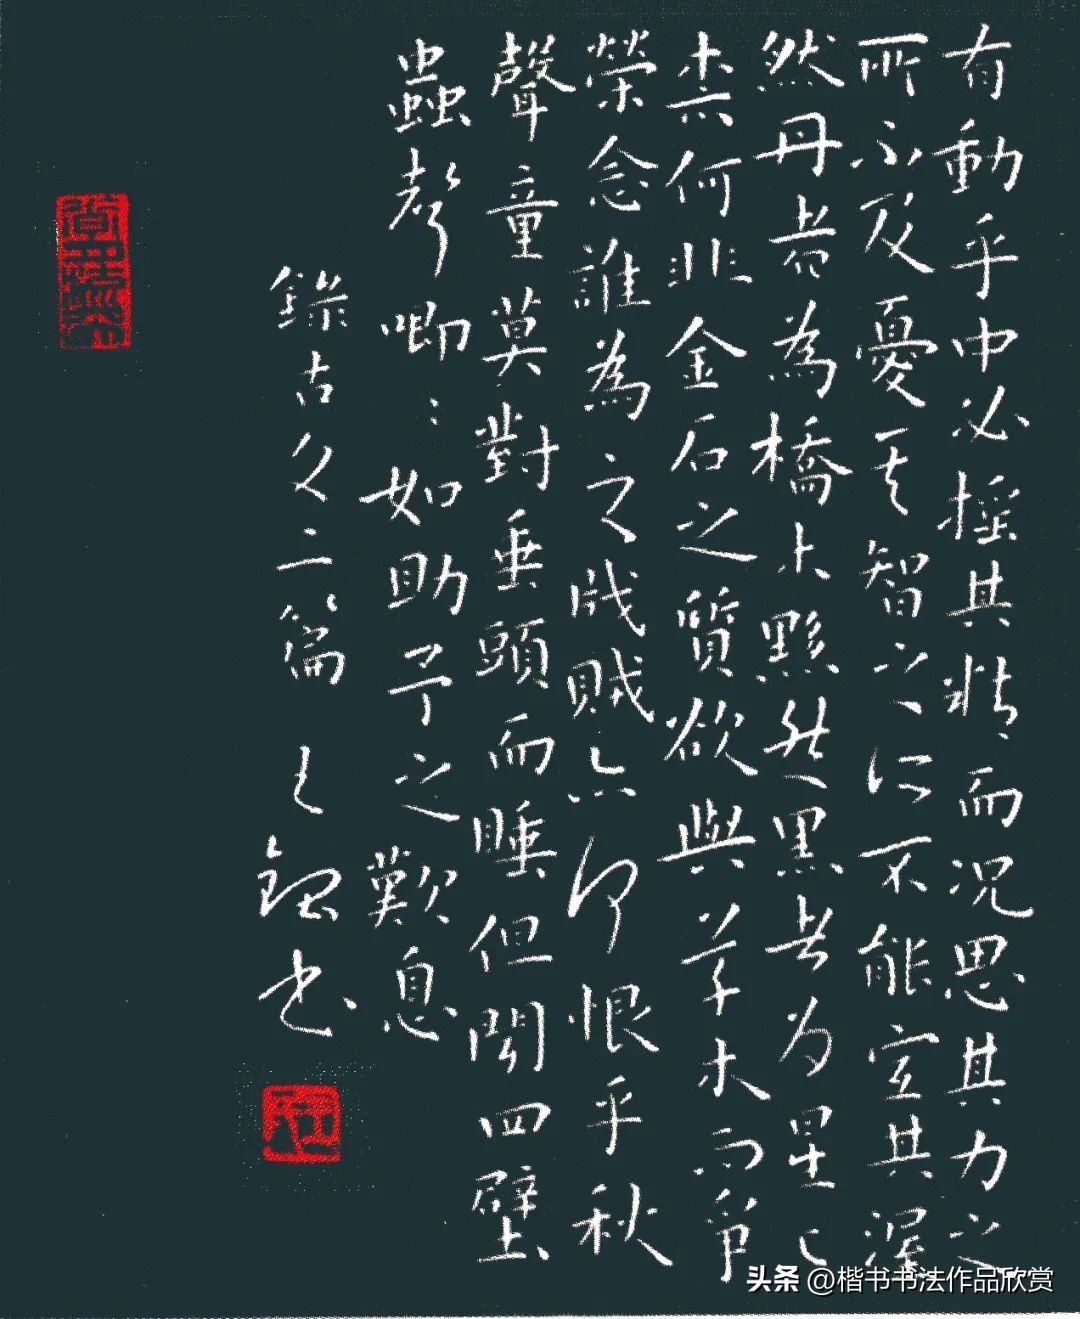 有動乎中必摇其精而況思其力之
所不及憂其智之所不能宜其渥
然丹者為橋木黟然黑者为星〻
柰何非金石之質欲與草木而爭
榮念誰為之戕賊亦何恨乎秋
聲童莫對垂頭而睡但聞四壁
蟲聲唧〻如助予之歎息
錄古文二篇 王书
头条 @楷书书法作品欣赏